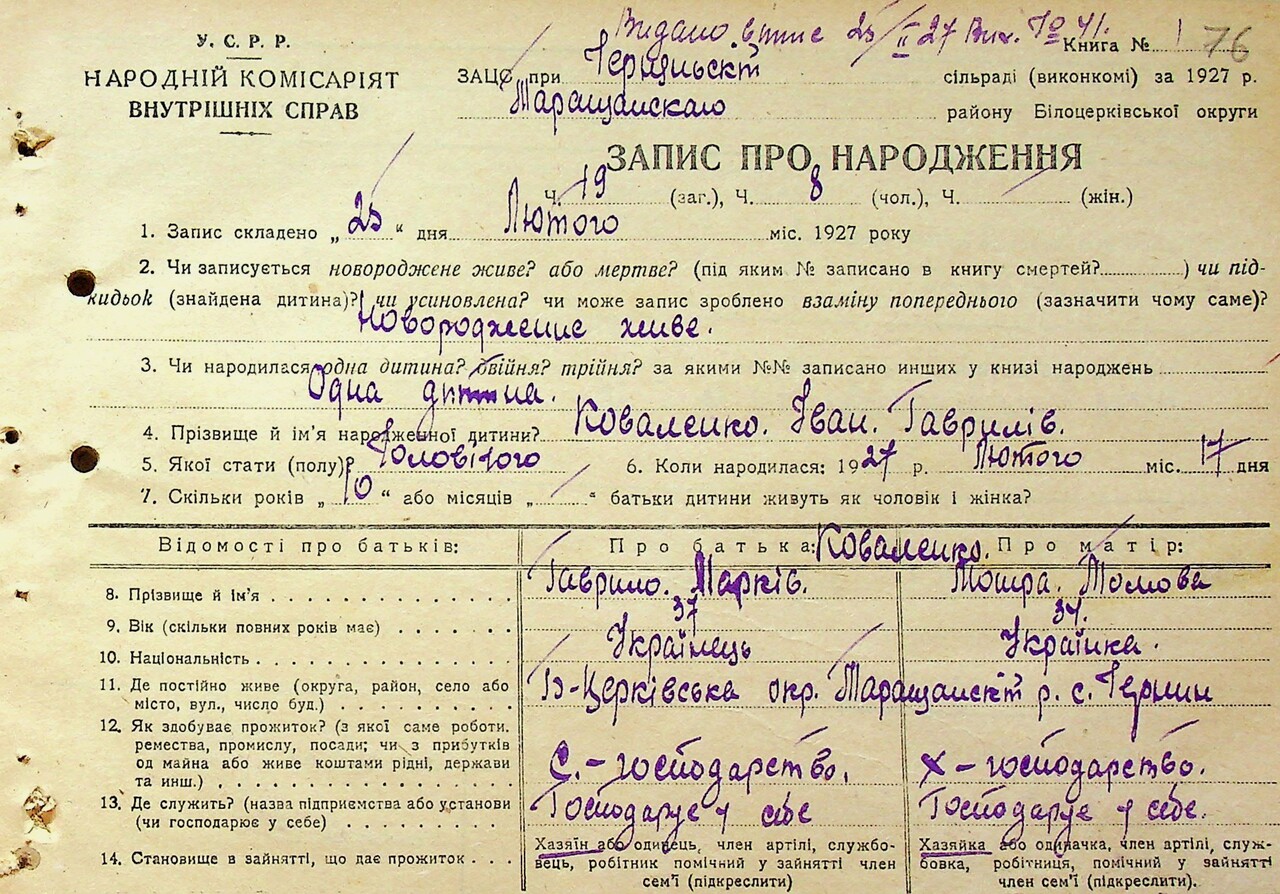 Видано витис 25/II 27 Вих. № 41.
У. С. Р. Р.
НАРОДНІЙ КОМІСАРІЯТ
ВНУТРІШНІХ СПРАВ
Книга № 1 76
ЗАЦС при сільраді (виконкомі) за 1927 р.
Таращанскаго району Білоцерківської округи
ЗАПИС ПРО НАРОДЖЕННЯ
Ч. 19 (заг.), Ч. 8 (чол.), Ч. (жін.)
1. Запис складено „ 25 " дня Лютого міс. 1927 року
2. Чи записується новороджене живе? або мертве? (під яким № записано в книгу смертей? ) чи під-
кидьок (знайдена дитина)? чи усиновлена? чи може запис зроблено взаміну попереднього (зазначити чому саме)?
Новороджение живе.
3. Чи народилася одна дитина? двійня? трійня? за якими №№ записано инших у книзі народжень
Одна дитина.
4. Прізвище й ім'я народженної дитини? Коваленко. Іван. Гаврилів.
5. Якої стати (полу)? Чоловічого 6. Коли народилася: 1927 р. Лютого міс. 17 дня
7. Скільки років „ 10 " або місяців „ " батьки дитини живуть як чоловік і жінка?
Відомості про батьків: Про батька: Коваленко. Про матір:
8. Прізвище й ім'я Гаврило. Марків.
9. Вік (скільки повних років має) 37 34.
10. Національність Українець Українка.
11. Де постійно живе (округа, район, село або
місто, вул., число буд.) Б-Церківська окр. р. с.
12. Як здобуває прожиток? (з якої саме роботи.
ремества, промислу, посади; чи з прибутків
од майна або живе коштами рідні, держави
та инш.) С.-господарство. Х-господарство.
13. Де служить? (назва підприємства або установи
(чи господарює у себе) Господарує у себе Господарує у себе.
14. Становище в зайнятті, що дає прожиток
Хазяїн або одинець, член артілі, службо-
вець, робітник помічний у зайнятті член
сем'ї (підкреслити)
Хазяйка або одиначка, член артілі, служ-
бовка, робітниця, помічний у зайнятті
член сем'ї (підкреслити).